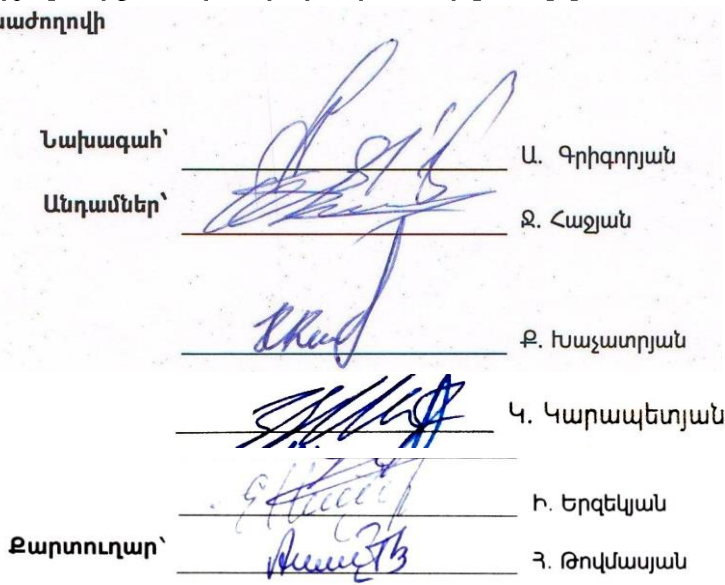 աժողովի
Նախագահ՝ Ա. Գրիգորյան
Անդամներ՝ Ջ. Հաջյան
Ք. Խաչատրյան
Կ. Կարապետյան
Ի. Երզեկյան
Քարտուղար՝ Հ. Թովմասյան